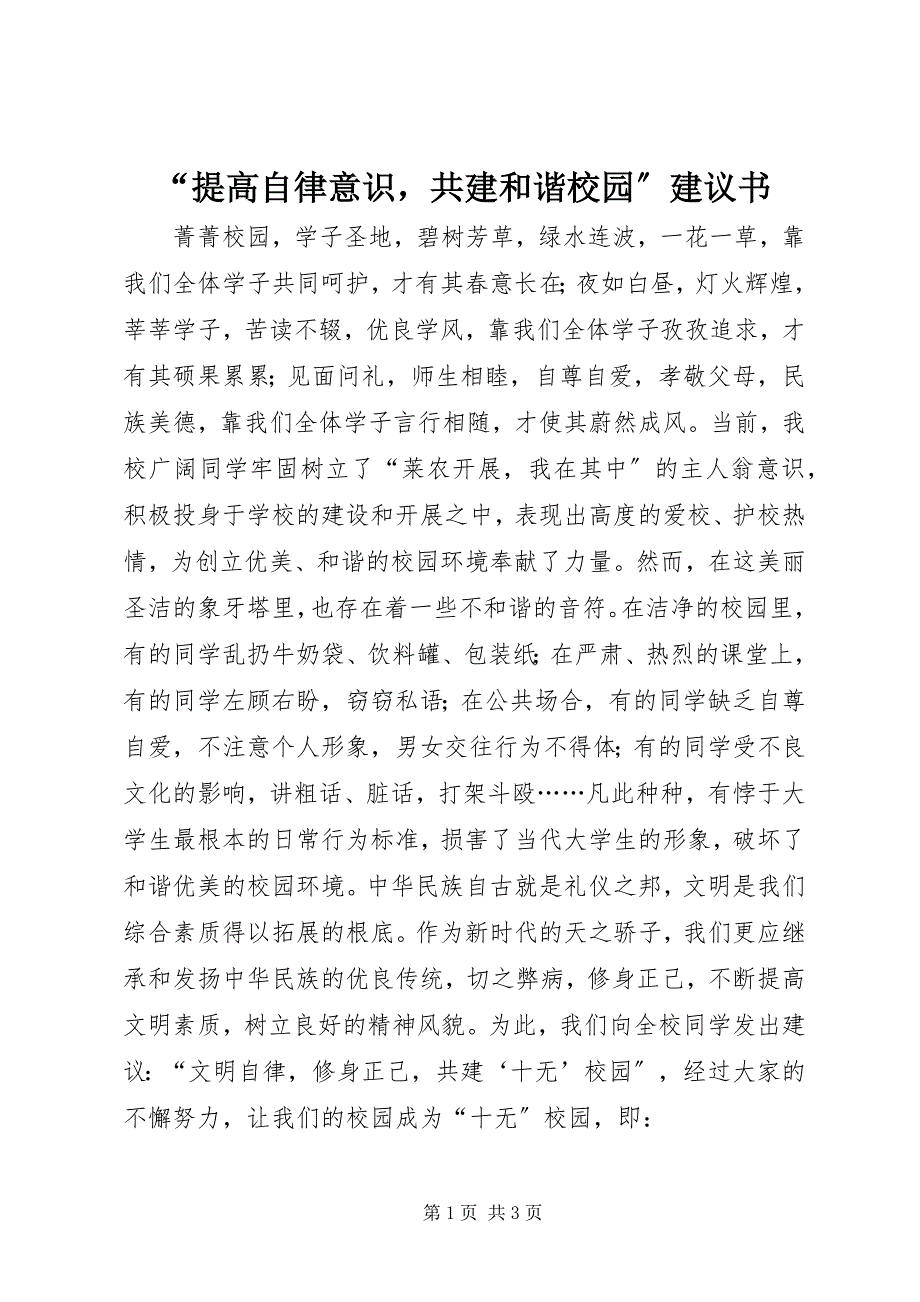 “提高自律意识，共建和谐校园〞建议书
菁菁校园，学子圣地，碧树芳草，绿水连波，一花一草，靠
我们全体学子共同呵护，才有其春意长在；夜如白昼，灯火辉煌，
莘莘学子，苦读不辍，优良学风，靠我们全体学子孜孜追求，才
有其硕果累累；见面问礼，师生相睦，自尊自爱，孝敬父母，民
族美德，靠我们全体学子言行相随，才使其蔚然成风。当前，我
校广阔同学牢固树立了“莱农开展，我在其中〞的主人翁意识，
积极投身于学校的建设和开展之中，表现出高度的爱校、护校热
情，为创立优美、和谐的校园环境奉献了力量。然而，在这美丽
圣洁的象牙塔里，也存在着一些不和谐的音符。在洁净的校园里，
有的同学乱扔牛奶袋、饮料罐、包装纸；在严肃、热烈的课堂上，
有的同学左顾右盼，窃窃私语；在公共场合，有的同学缺乏自尊
自爱，不注意个人形象，男女交往行为不得体；有的同学受不良
文化的影响，讲粗话、脏话，打架斗殴……凡此种种，有悖于大
学生最根本的日常行为标准，损害了当代大学生的形象，破坏了
和谐优美的校园环境。中华民族自古就是礼仪之邦，文明是我们
综合素质得以拓展的根底。作为新时代的天之骄子，我们更应继
承和发扬中华民族的优良传统，切之弊病，修身正己，不断提高
文明素质，树立良好的精神风貌。为此，我们向全校同学发出建
议：“文明自律，修身正己，共建‘十无’校园〞，经过大家的
不懈努力，让我们的校园成为“十无〞校园，即：
第 1 页 共 3 页